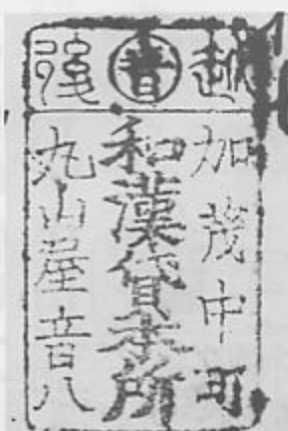 越㊥後
加茂中町
和漢貸本所
丸山屋音八